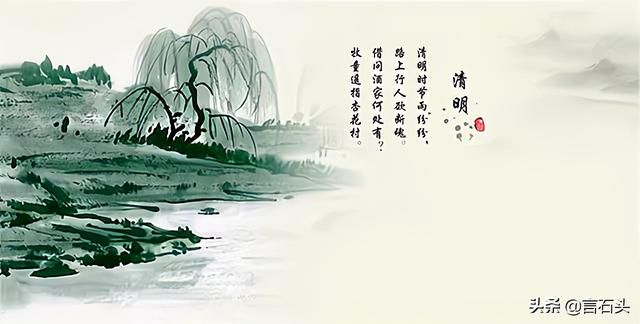 清明
清明时节雨纷纷，
路上行人欲断魂。
借问酒家何处有？
牧童遥指杏花村。
头条 @言石头